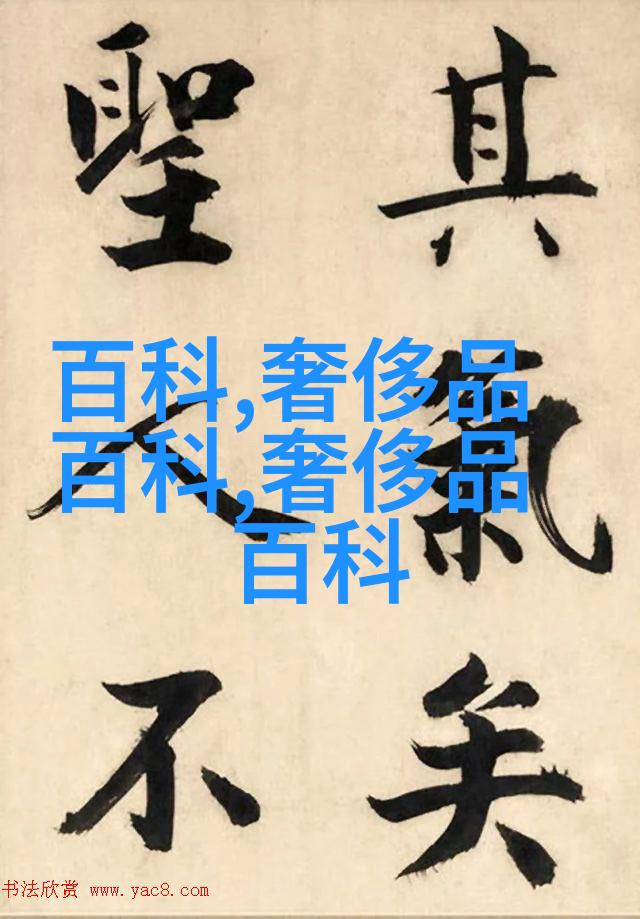 其氣矣
聖人不
百科,奢侈品
百科,奢侈品
百科
书法欣赏 www.yac8.com